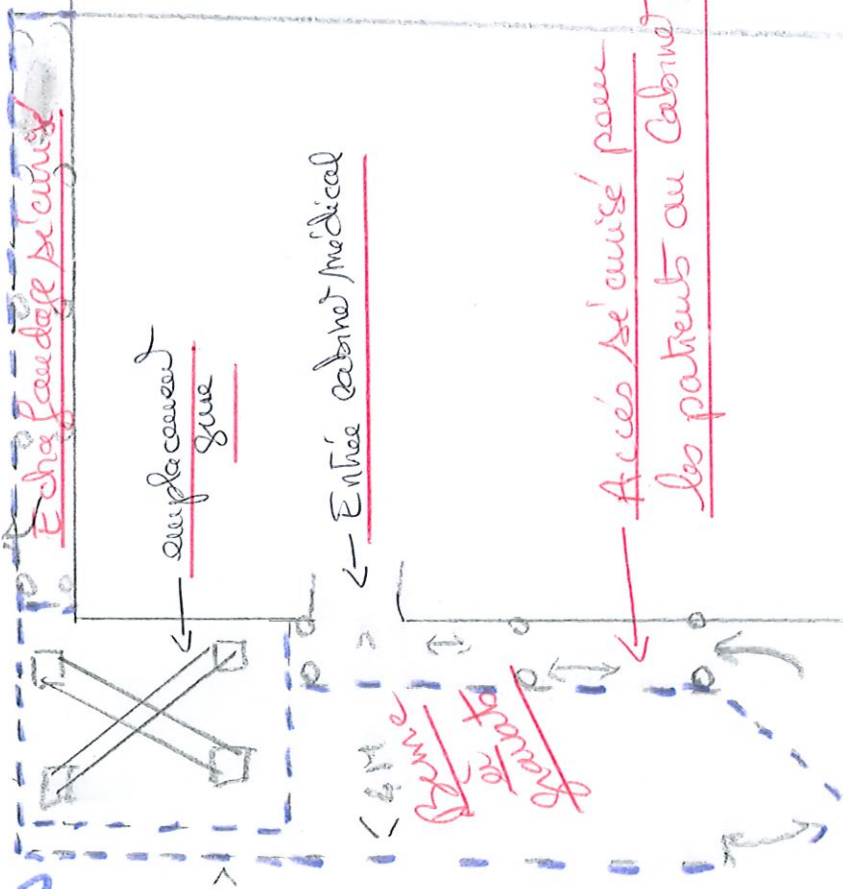 Echafaudage sécurisé
emplacement
grue
← Entrée cabinet médical
Accès sécurisé pour
les patients au Cabinet
Benne
et